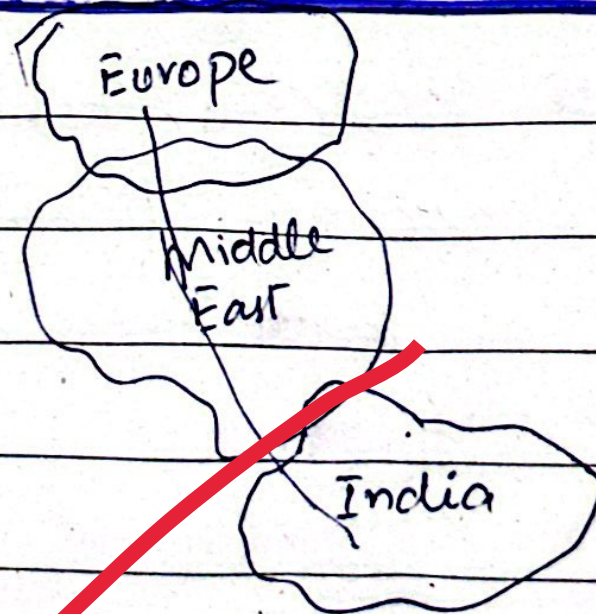 Europe
Middle
East
India